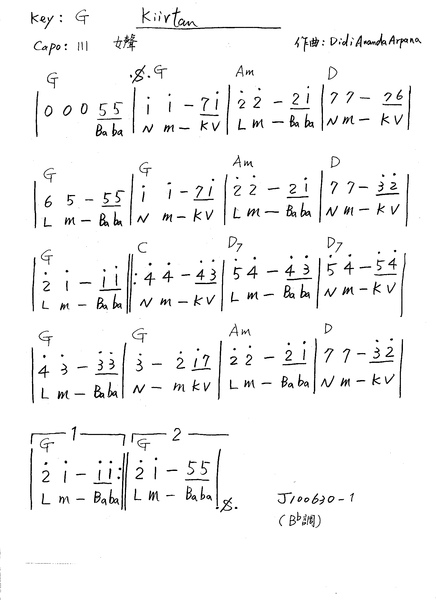 Key: G Kiirtan
Capo: III 女聲 作曲: Didi Ananda Arpana
G 𝄋 G Am D
| 0 0 0 5 5 | i i - 7 i | 2̇ 2̇ - 2̇ i | 7 7 - 7 6 |
Ba ba N m - K V L m - Ba ba N m - K V
G G Am D
| 6 5 - 5 5 | i i - 7 i | 2̇ 2̇ - 2̇ i | 7 7 - 3̇ 2̇ |
L m - Ba ba N m - K V L m - Ba ba N m - K V
G C D7 D7
| 2̇ i - i i ‖: 4̇ 4̇ - 4̇ 3̇ | 5̇ 4̇ - 4̇ 3̇ | 5̇ 4̇ - 5̇ 4̇ |
L m - Ba ba N m - K V L m - Ba ba N m - K V
G G Am D
| 4̇ 3̇ - 3̇ 3̇ | 3̇ - 2̇ i 7 | 2̇ 2̇ - 2̇ i | 7 7 - 3̇ 2̇ |
L m - Ba ba N - m K V L m - Ba ba N m - K V
1 2
G G
| 2̇ i - i i :‖ 2̇ i - 5 5 | 𝄋
L m - Ba ba L m - Ba ba
J100630-1
(B♭調)